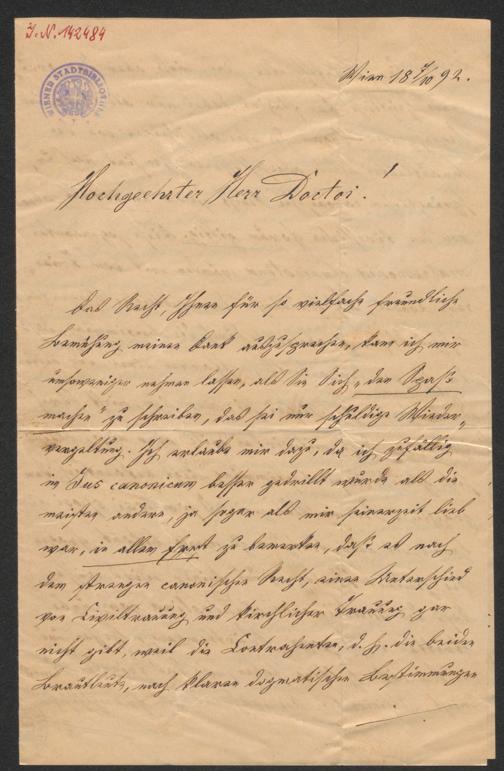 I. N. 142484
WIENER STADTBIBLIOTHEK
Wien 18 7/10 92.
Hochgeehrter Herr Doctor!
Das Recht, Ihnen für so vielfache freundliche
Bemühung meinen Dank auszusprechen, kann ich mir
umsoweniger nehmen lassen, als Sie Sich „den Spaß
machen" zu schreiben, das sei nur schuldige Wieder-
vergeltung. Ich erlaube mir dazu, da ich zufällig
in Jus canonicum besser gedrillt wurde als die
meisten andern, ja sogar als mir seinerzeit lieb
war, in allem Ernst zu bemerken, daß es nach
dem strengen canonischen Recht, einen Unterschied
von Civiltrauung und kirchlicher Trauung gar
nicht gibt, weil die Contrahenten, d. h. die beiden
Brautleute, nach klaren dogmatischen Bestimmungen